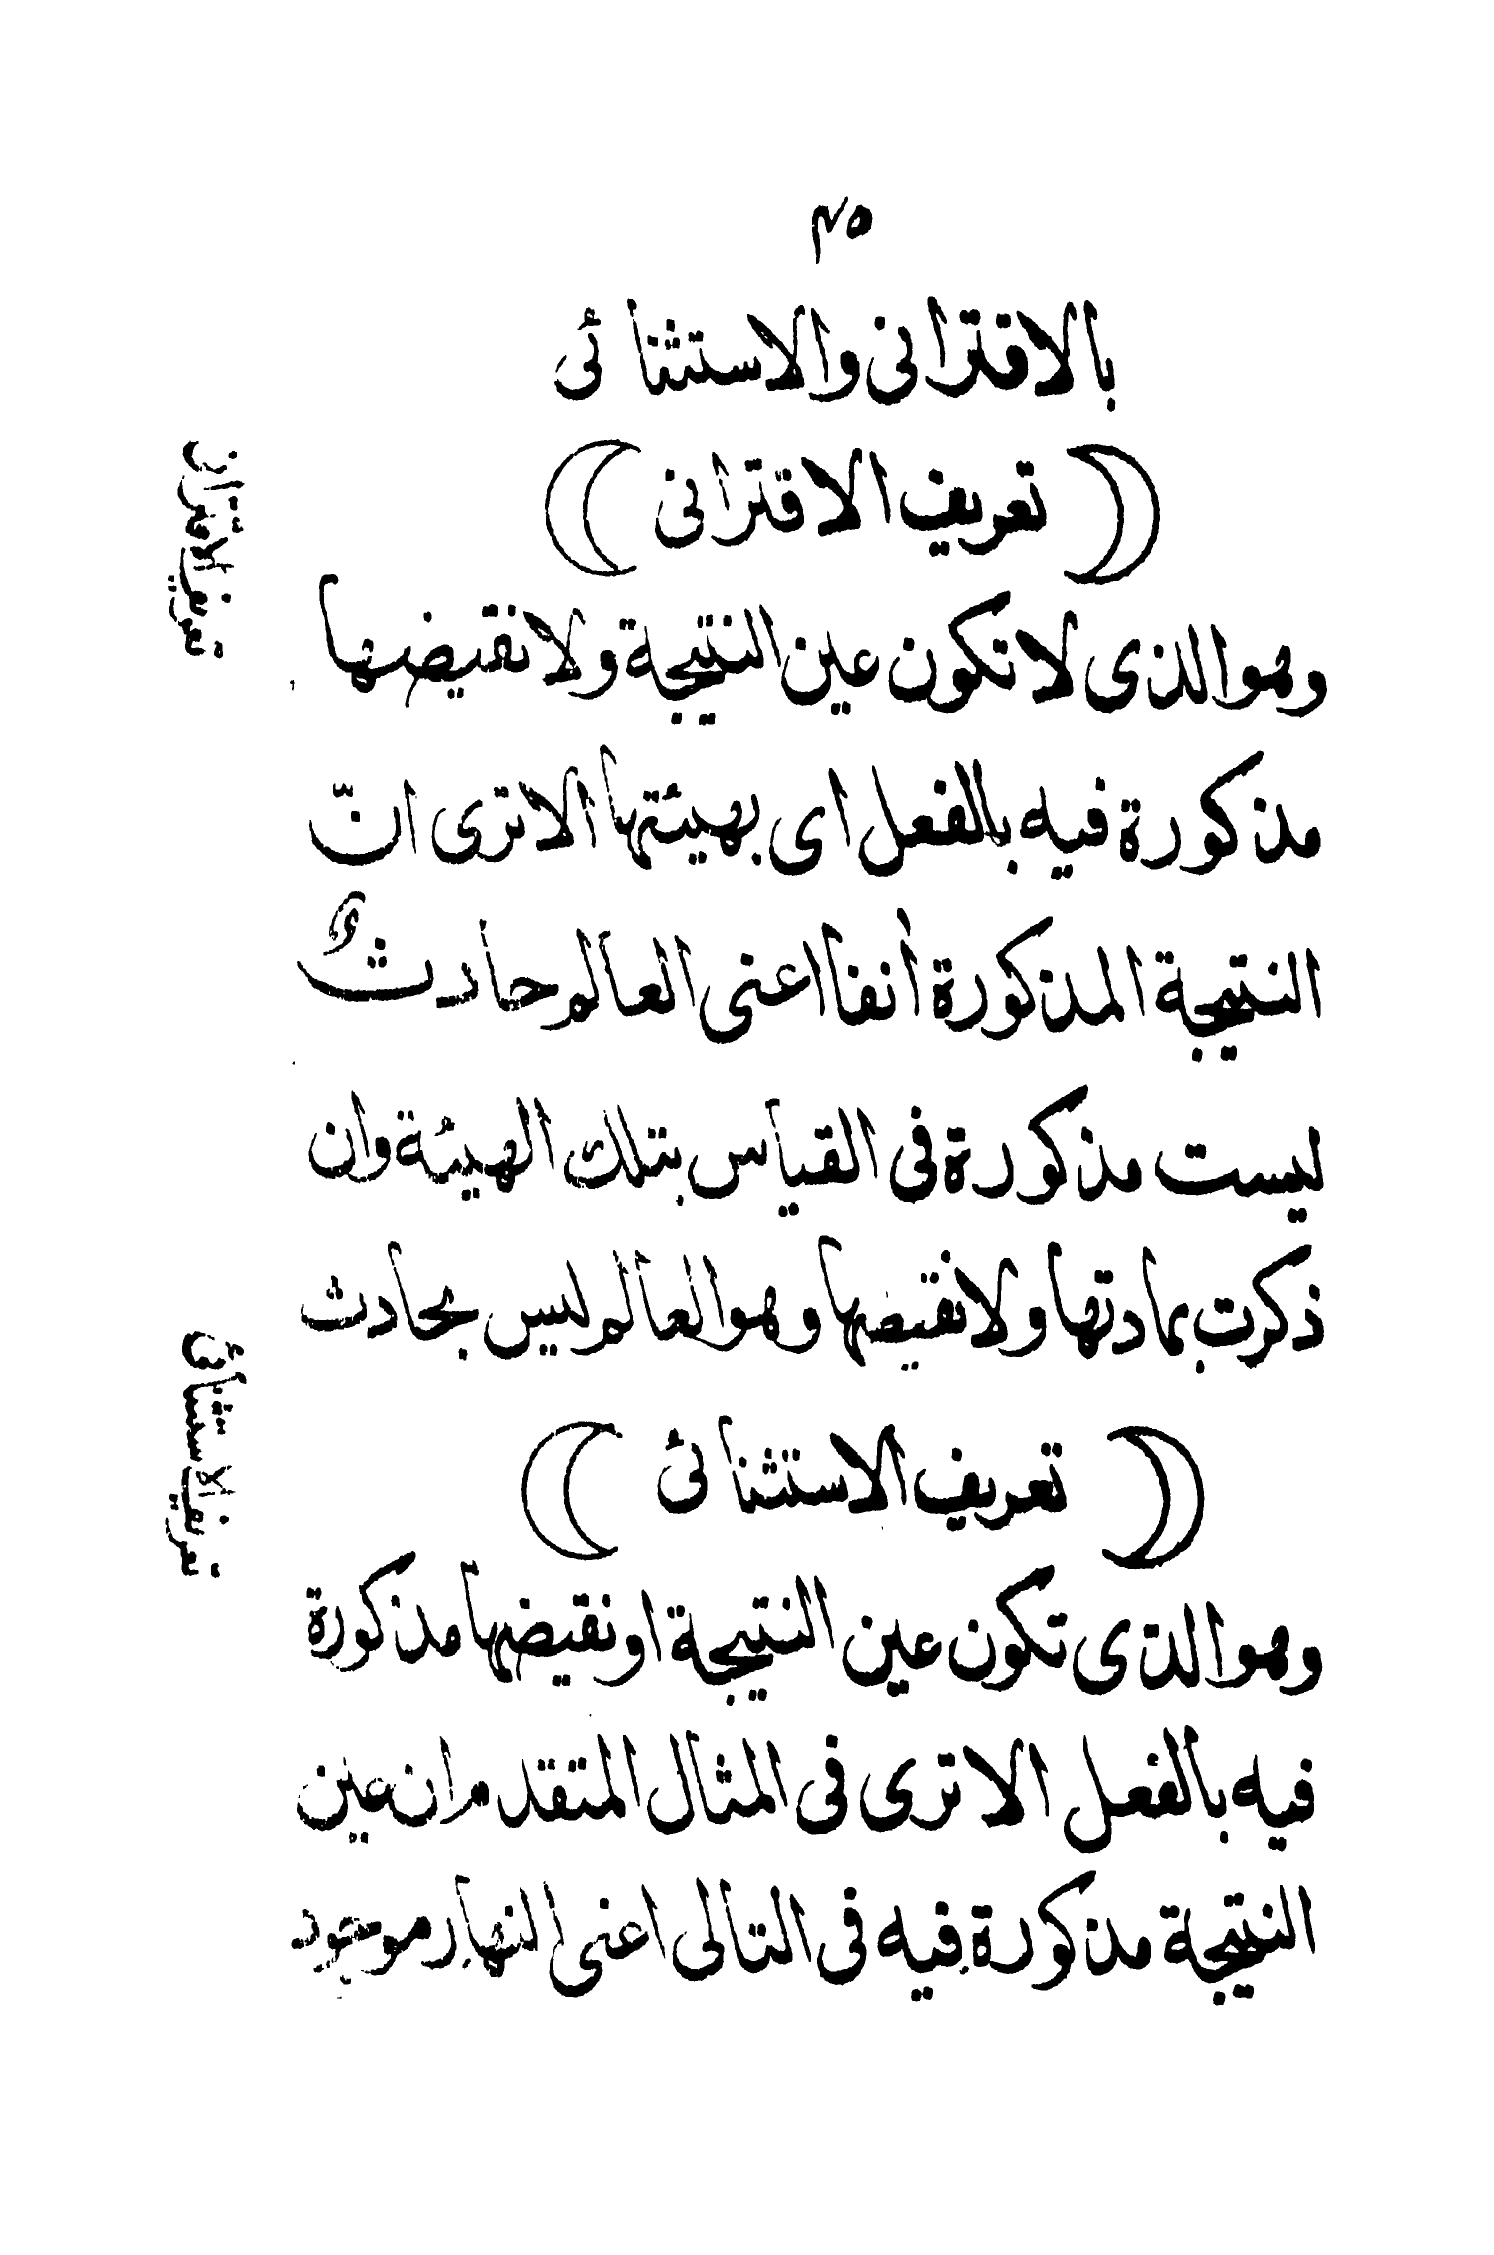 ٤٥
بالاقترانى والاستثنائى
(تعريف الاقترانى)
تعريف الاقتران
وهو الذى لا تكون عين النتيجة ولا نقيضها
مذكورة فيه بالفعل اى بهيئتها الا ترى انّ
النتيجة المذكورة أنفا اعنى العالم حادثٌ
ليست مذكورة فى القياس بتلك الهيئة وان
ذكرت بمادتها ولا نقيضها وهو العالم ليس بحادث
(تعريف الاستثنائى)
تعريف الاستثنائى
وهو الذى تكون عين النتيجة او نقيضها مذكورة
فيه بالفعل الا ترى فى المثال المتقدم ان عين
النتيجة مذكورة فيه فى التالى اعنى النهار موجود